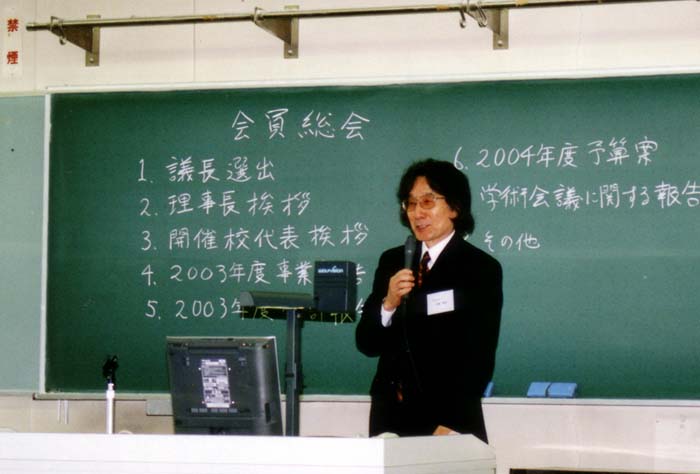 禁煙
会員総会
1. 議長選出
2. 理事長挨拶
3. 開催校代表挨拶
4. 2003年度事業 告
5. 2003年度 報告
6. 2004年度予算案
学術会議に関する報告
その他